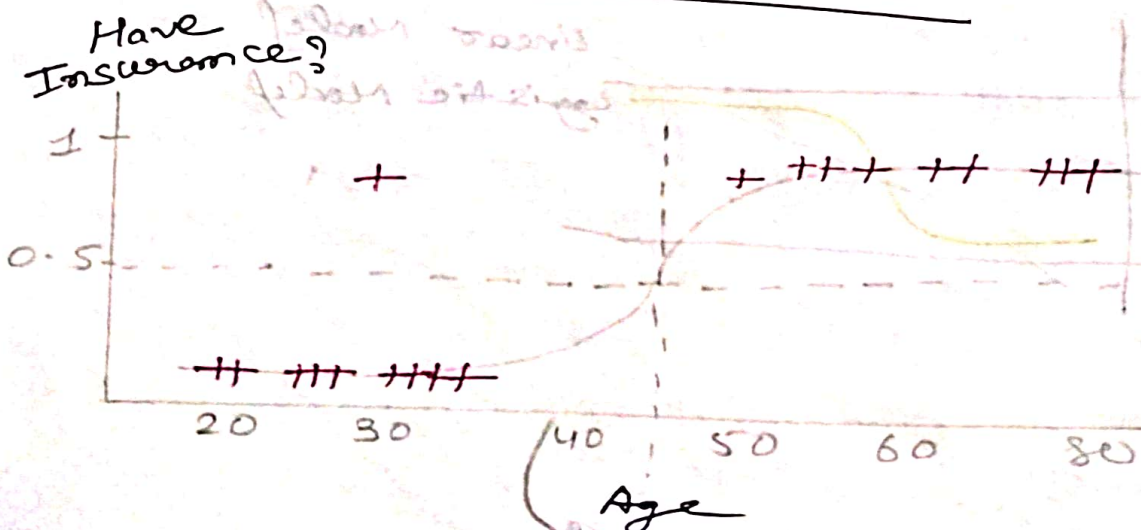 Have
Insurance?
1
0.5
20 30 40 50 60 80
Age